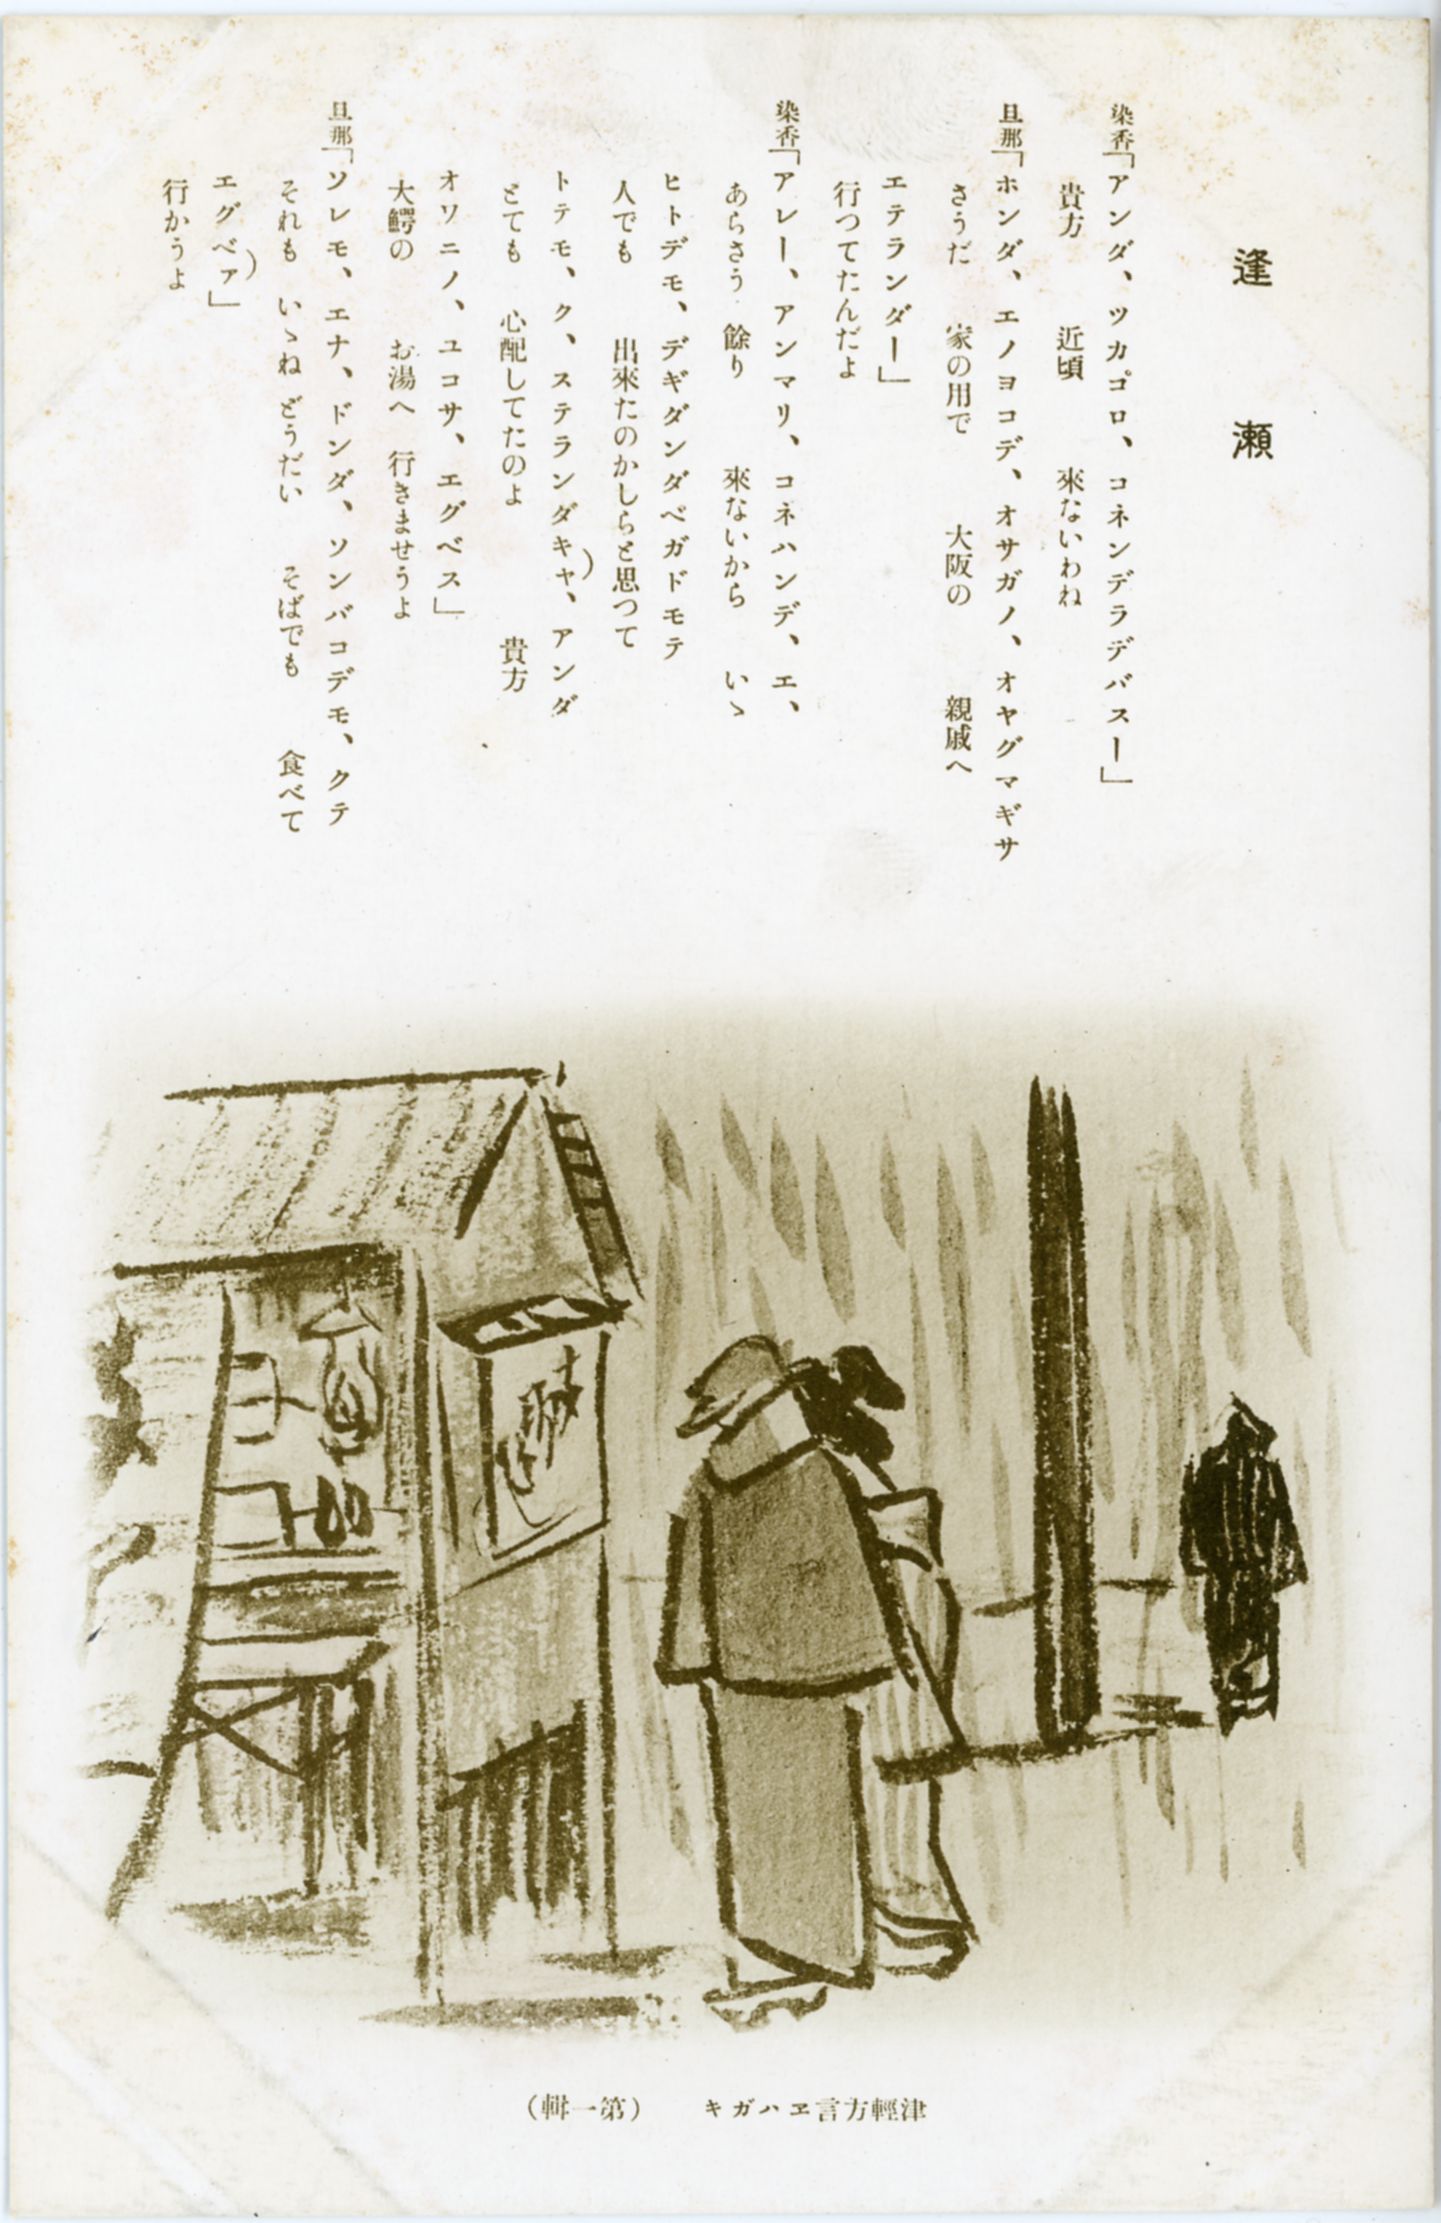 逢瀬
染香「アンダ、ツカゴロ、コネンデラデバスー」
貴方 近頃 來ないわね
旦那「ホンダ、エノヨコデ、オサガノ、オヤグマギサ
さうだ 家の用で 大阪の 親戚へ
エテランダー」
行つてたんだよ
染香「アレー、アンマリ、コネハンデ、エ、
あらさう 餘り 來ないから いゝ
ヒトデモ、デギダンダベガドモテ
人でも 出來たのかしらと思つて
トテモ、ク、ステランダキャ、アンダ
とても 心配してたのよ 貴方
オワニノ、ユコサ、エグベス」
大鰐の お湯へ 行きませうよ
旦那「ソレモ、エナ、ドンダ、ソンバコデモ、クテ
それも いゝね どうだい そばでも 食べて
エグベァ」
行かうよ
津輕方言ヱハガキ （第一輯）